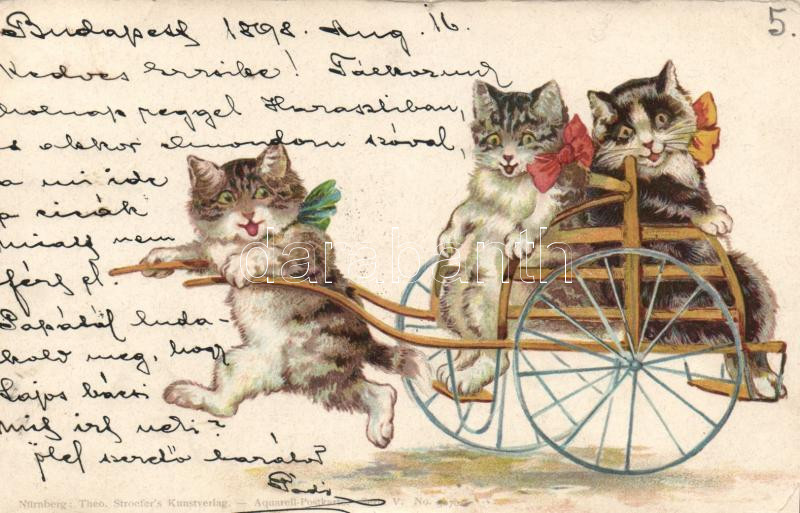 Budapest 1898. Aug. 16.
5.
Kedves Erzsike! Találkozunk
holnap reggel Harasztiban,
s akkor elmondom szóval,
a mi ide
a cicák
miatt nem
fér el.
Papától tuda-
kold meg, hogy
Lajos bácsi
mit írt neki?
Ölel szerető barátod
darabanth
Nürnberg: Theo. Stroefer's Kunstverlag. — Aquarell-Postkarten V. No.